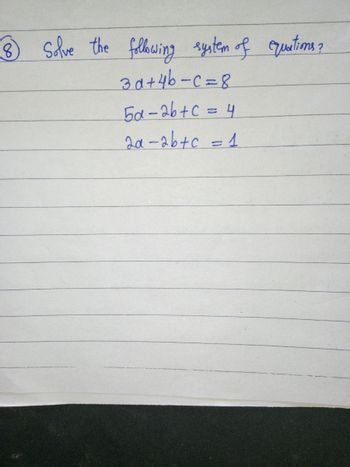 8) Solve the following system of equations?
3a+4b-c=8
5a-2b+c = 4
2a-2b+c = 1